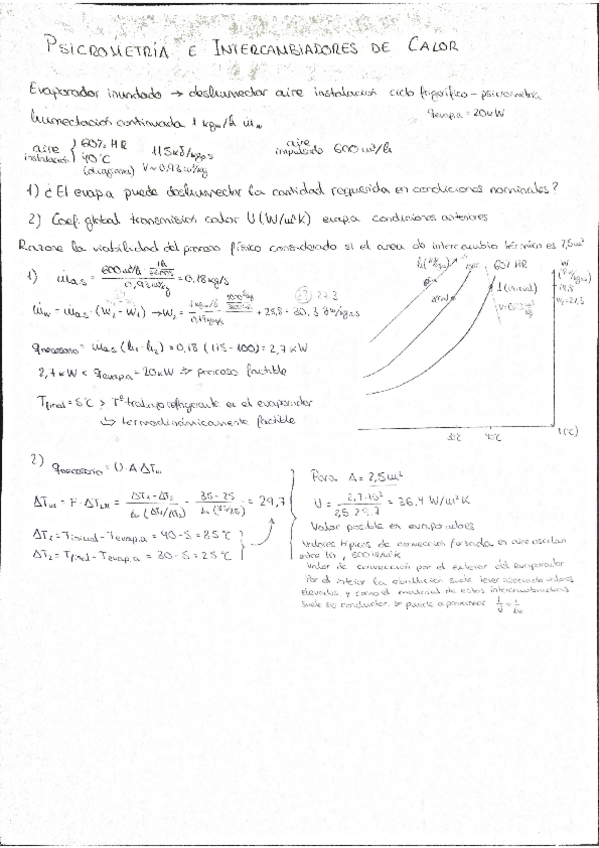 PSICROMETRÍA E INTERCAMBIADORES DE CALOR
Evaporador inundado → deshumectar aire instalación ciclo frigorífico - psicrometría
humectación continuada 1 kgw/h ṁw
qevapa = 20kW
aire instalación { 60% HR
40°C
(diagrama)
115 kJ/kgas
V ~ 0,93 m³/kg
aire impulsado 600 m³/h
1) ¿El evapa puede deshumectar la cantidad requerida en condiciones nominales?
2) Coef. global transmisión calor U (W/m²K) evapa condiciones anteriores
Razone la viabilidad del proceso físico considerado si el área de intercambio térmico es 2,5m²
1) ṁas = = 0,18 kg/s
ṁw = ṁas · (w2 - w1) → w2 =
qnecesario = ṁas (h1 - h2) = 0,18 (115 - 100) = 2,7 kW
2,7 kW < qevapa = 20kW ⇒ proceso factible
Tfinal = 5°C > Tª trabajo refrigerante en el evaporador
↳ termodinámicamente factible
60% HR
30°C 40°C T(°C)
2) qnecesario = U · A · ΔTm
ΔTm = F · ΔTLM = (ΔT1 - ΔT2) / ln (ΔT1/ΔT2) = (35 - 25) / ln (35/25) = 29,7
ΔT1 = Tinicial - Tevapa = 40 - 5 = 35°C
ΔT2 = Tfinal - Tevapa = 30 - 5 = 25°C
Para A = 2,5m²
U = 2,7·10³ / 2,5·29,7 = 36,4 W/m²K
Valor posible en evaporadores
Valores típicos de convección forzada en aire oscilan
Valor de convección por el exterior del evaporador
Por el interior la ebullición suele tener asociado valores
elevados y como el material de estos intercambiadores
suele ser conductor ⇒ puede aproximar